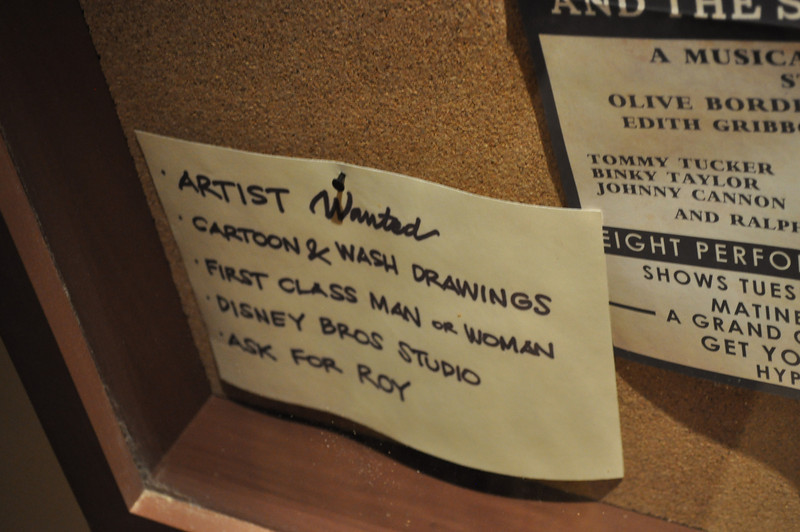 · ARTIST Wanted
· CARTOON & WASH DRAWINGS
· FIRST CLASS MAN OR WOMAN
· DISNEY BROS STUDIO
· ASK FOR ROY
AND THE S
A MUSICA
ST
OLIVE BORDE
EDITH GRIBBO
TOMMY TUCKER
BINKY TAYLOR
JOHNNY CANNON
AND RALPH
EIGHT PERFO
SHOWS TUES
MATINE
A GRAND
GET YO
HYP